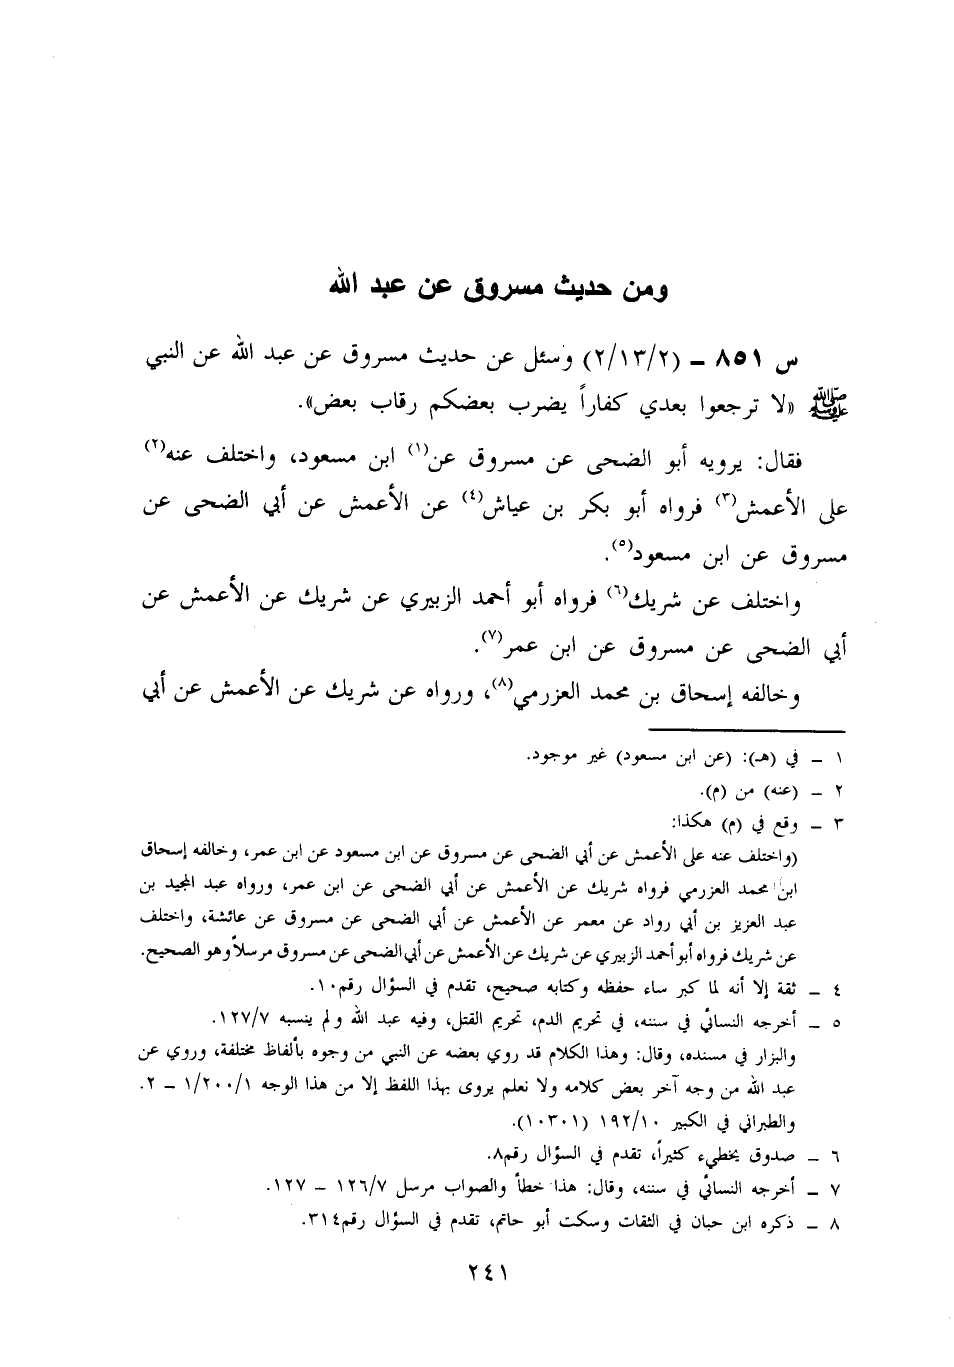 ومن حديث مسروق عن عبد الله
س ٨٥١ - (٢/١٣/٢) وسئل عن حديث مسروق عن عبد الله عن النبي
ﷺ «لا ترجعوا بعدي كفاراً يضرب بعضكم رقاب بعض».
فقال: يرويه أبو الضحى عن مسروق عن(١) ابن مسعود، واختلف عنه(٢)
على الأعمش(٣) فرواه أبو بكر بن عياش(٤) عن الأعمش عن أبي الضحى عن
مسروق عن ابن مسعود(٥).
واختلف عن شريك(٦) فرواه أبو أحمد الزبيري عن شريك عن الأعمش عن
أبي الضحى عن مسروق عن ابن عمر(٧).
وخالفه إسحاق بن محمد العزرمي(٨)، ورواه عن شريك عن الأعمش عن أبي
١ - في (هـ): (عن ابن مسعود) غير موجود.
٢ - (عنه) من (م).
٣ - وقع في (م) هكذا:
(واختلف عنه على الأعمش عن أبي الضحى عن مسروق عن ابن مسعود عن ابن عمر، وخالفه إسحاق
ابن محمد العزرمي فرواه شريك عن الأعمش عن أبي الضحى عن ابن عمر، ورواه عبد المجيد بن
عبد العزيز بن أبي رواد عن معمر عن الأعمش عن أبي الضحى عن مسروق عن عائشة، واختلف
عن شريك فرواه أبو أحمد الزبيري عن شريك عن الأعمش عن أبي الضحى عن مسروق مرسلاً وهو الصحيح.
٤ - ثقة إلا أنه لما كبر ساء حفظه وكتابه صحيح، تقدم في السؤال رقم١٠.
٥ - أخرجه النسائي في سننه، في تحريم الدم، تحريم القتل، وفيه عبد الله ولم ينسبه ١٢٧/٧.
والبزار في مسنده، وقال: وهذا الكلام قد روي بعضه عن النبي من وجوه بألفاظ مختلفة، وروي عن
عبد الله من وجه آخر بعض كلامه ولا نعلم يروى بهذا اللفظ إلا من هذا الوجه ١/٢٠٠/١ - ٢.
والطبراني في الكبير ١٩٢/١٠ (١٠٣٠١).
٦ - صدوق يخطيء كثيراً، تقدم في السؤال رقم٨.
٧ - أخرجه النسائي في سننه، وقال: هذا خطأ والصواب مرسل ١٢٦/٧ - ١٢٧.
٨ - ذكره ابن حبان في الثقات وسكت أبو حاتم، تقدم في السؤال رقم٣١٤.
٢٤١